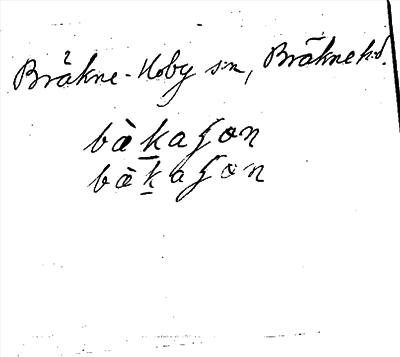 Bräkne-Hoby sn, Bräkne hd.
bàkaſon
bàkaſon